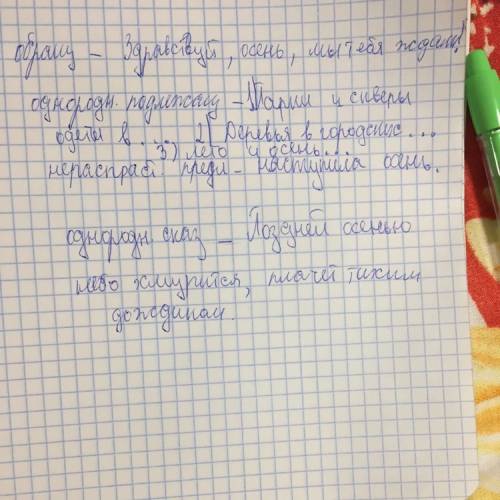 обращ – Здравствуй, осень, мы тебя ждали!
однородн. подлежащ – 1) Парки и скверы
одеты в ... 2) Деревья в городских ...
3) лето и осень...
нераспрост. предл – наступила осень.
однородн сказ – Поздней осенью
небо хмурится, плачет тихим
дождиком.